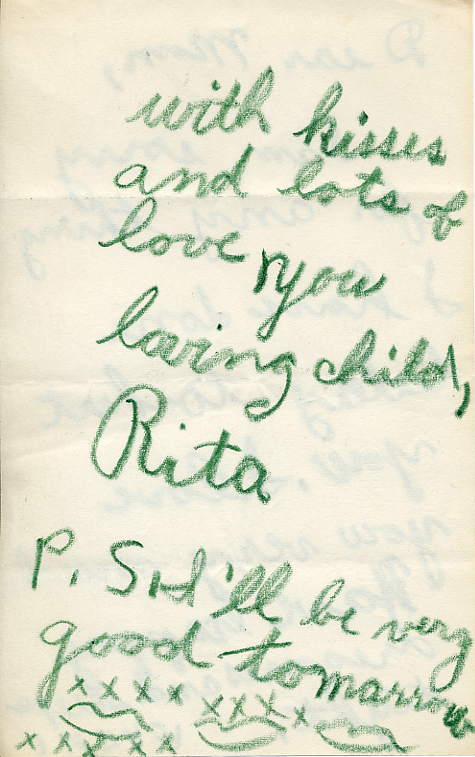 with kisses
and lots of
love you
loving child,
Rita
P. S. I'll be very
good tomarrow
x x x x x x x x
x x x x x